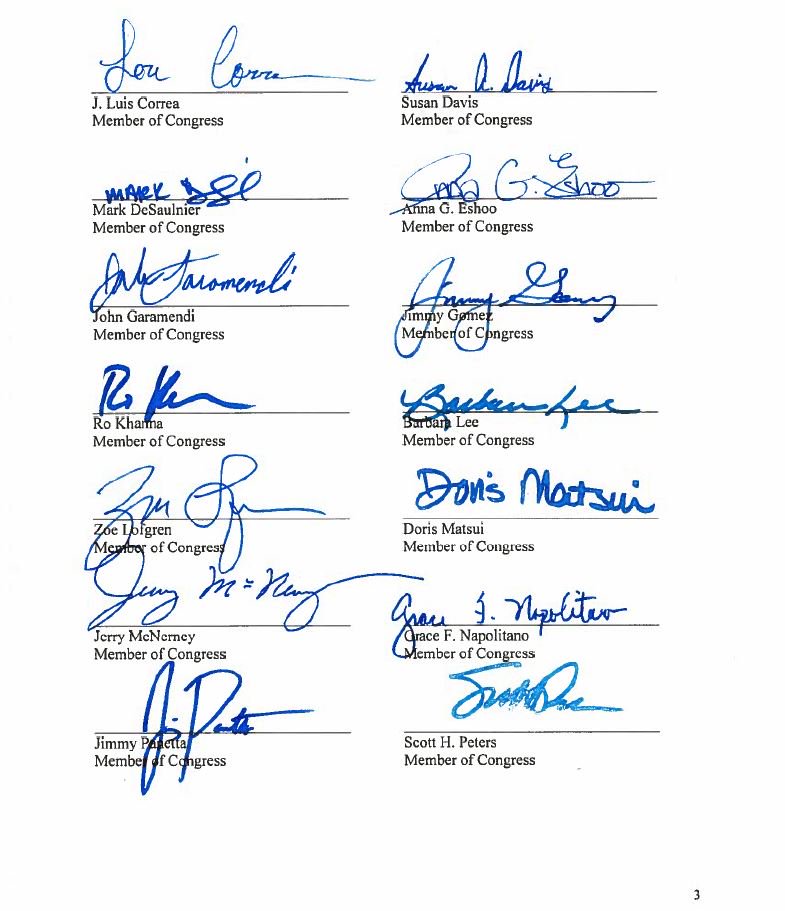 Lou Correa
J. Luis Correa
Member of Congress
Susan A. Davis
Susan Davis
Member of Congress
MARK
Mark DeSaulnier
Member of Congress
Anna G. Eshoo
Anna G. Eshoo
Member of Congress
John Garamendi
John Garamendi
Member of Congress
Jimmy Gomez
Jimmy Gomez
Member of Congress
Ro Khanna
Ro Khanna
Member of Congress
Barbara Lee
Barbara Lee
Member of Congress
Zoe Lofgren
Zoe Lofgren
Member of Congress
Doris Matsui
Doris Matsui
Member of Congress
Jerry McNerney
Jerry McNerney
Member of Congress
Grace F. Napolitano
Grace F. Napolitano
Member of Congress
Jimmy Panetta
Member of Congress
Scott H. Peters
Member of Congress
3